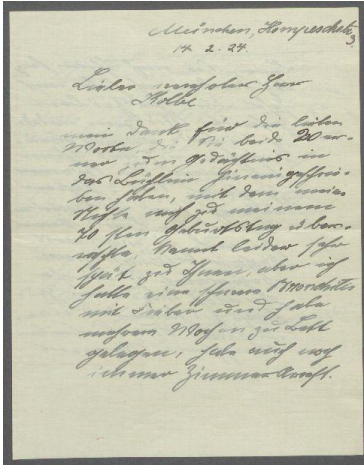 München, Hompeschstr. 3
14. 2. 24.
Lieber verehrter Herr
Kolbe
mein Dank für die lieben
Worte, die Sie beide
zum Gedächtnis in
das Büchlein hineingeschrie-
ben haben, mit dem meine
mich zu meinem
70sten Geburtstag über-
kommt leider sehr
spät zu Ihnen, aber ich
hatte eine schwere Bronchitis
mit Fieber und habe
mehrere Wochen zu Bett
gelegen, habe auch noch
immer Zimmerarrest.